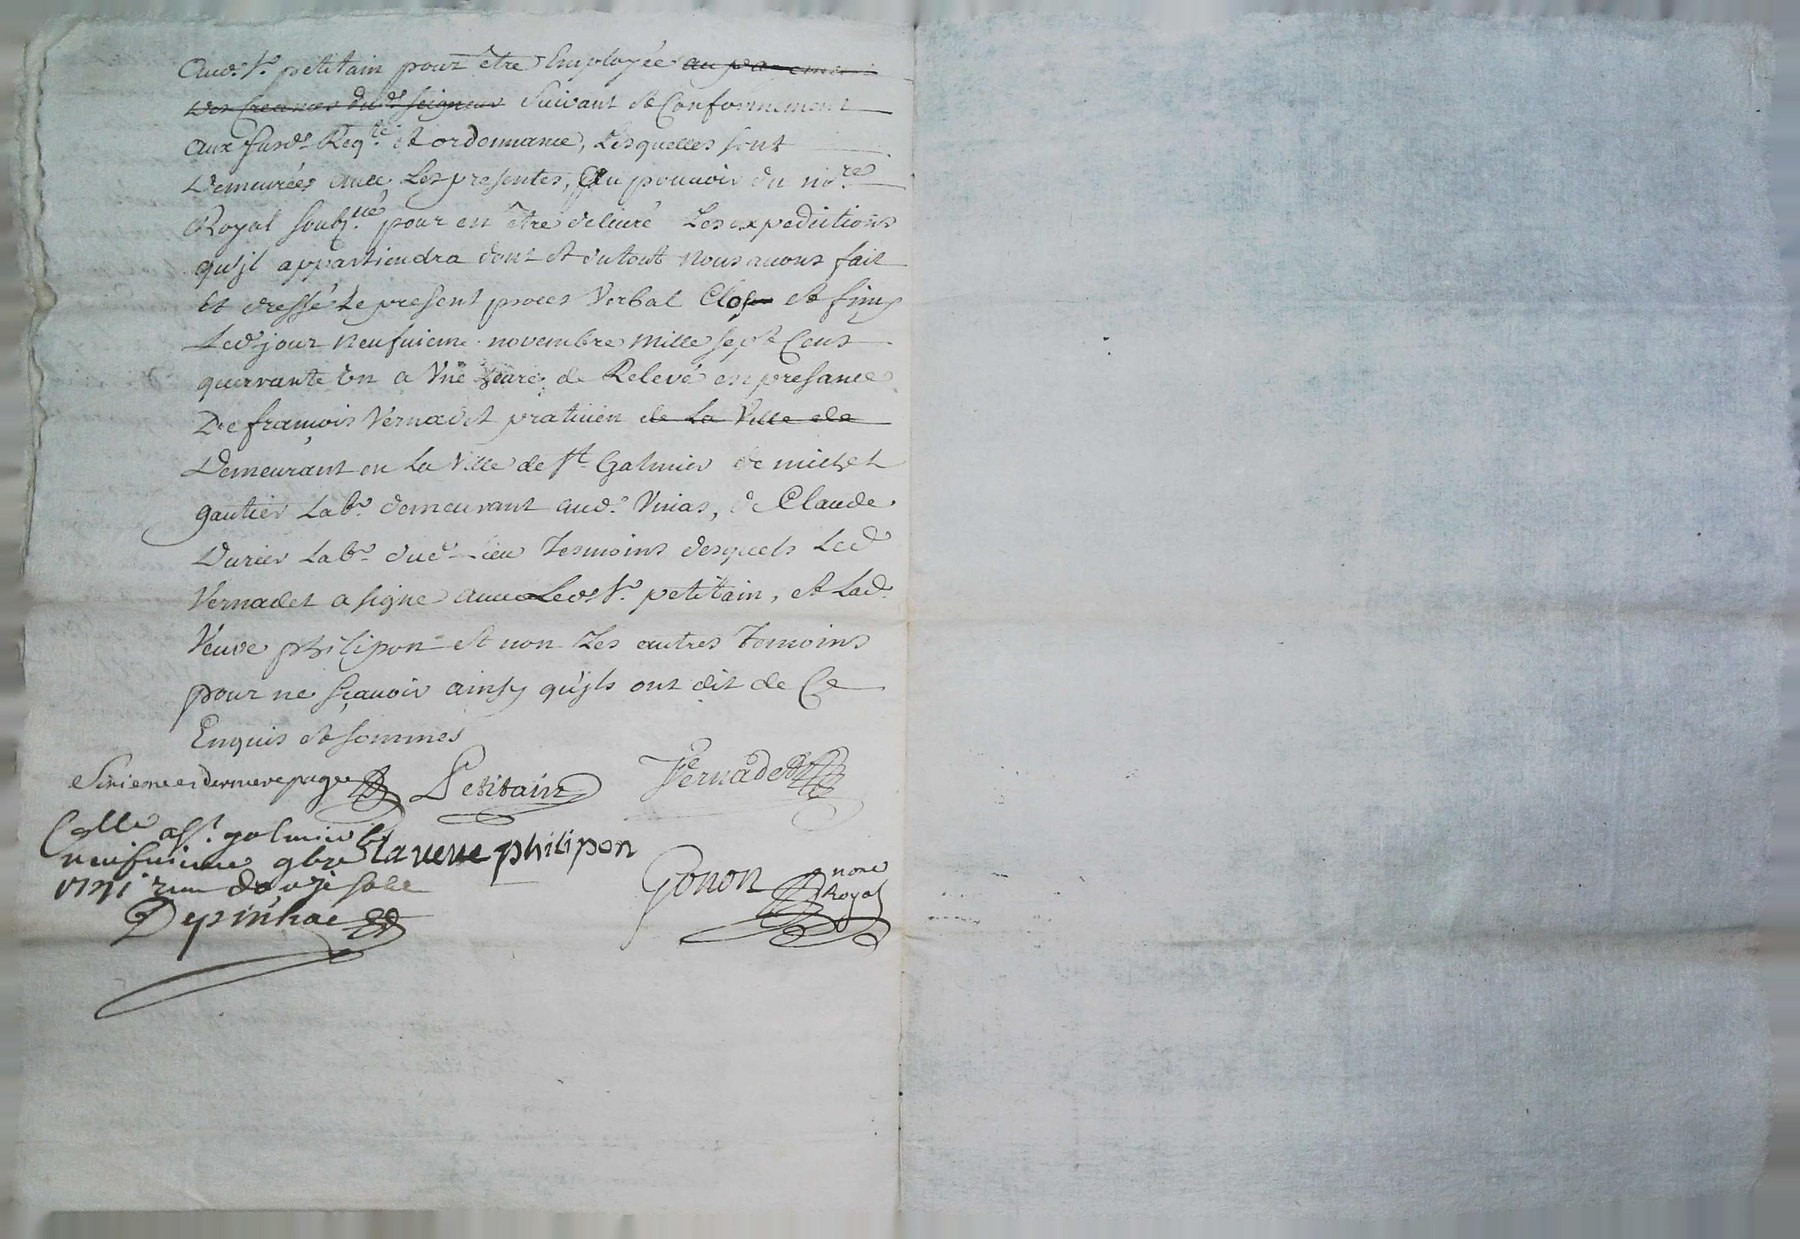 Aud. Sr. petitain pour être Employée au paiement
des Creances dud. seigneur Suivant et Conformement
aux susds. Reqte. et ordonnance, Lesquelles sont
Demeurées avec Les presentes, Au pouvoir du nore.
Royal soubsné. pour en être delivré Les expeditions
qu'jl appartiendra dont et dutout Nous avons fait
Et dressé Le present proces Verbal Clos et finy
Led. jour neufvieme novembre mille sept Cens
quarante Un a Une heure de Relevé en presance
De françois Vernadet praticien de La Ville de
Demeurant en La Ville de St. Galmier de michel
gautier Labr. demeurant aud. Virias, de Claude
Durier Labr. dud. Lieu Tesmoins desquels Led.
Vernadet a signé avec Leds. Sr. petitain, et Lad.
Veuve philipon et non Les autres Temoins
pour ne sçavoir ainsy qu'jls ont dit de Ce
Enquis et sommés
Sixieme et derniere page Petitain Vernadet
Collé a St. galmier le
neufvieme 9bre la veuve philipon
1741 douze sols
Gonon nore
Royal
Depinhac